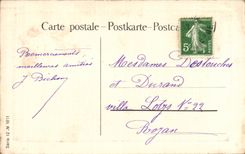 Carte postale - Postkarte - Postcard
5c
Remerciements
meilleures amitiés
J Bichon
Mesdames Destouches
et Durand
villa Lolys N° 22
Royan